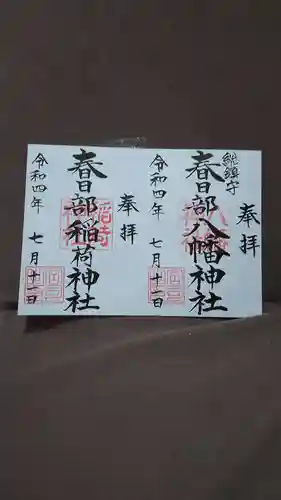 奉拝
総鎮守
春日部八幡神社
令和四年 七月十二日
奉拝
春日部稲荷神社
令和四年 七月十二日